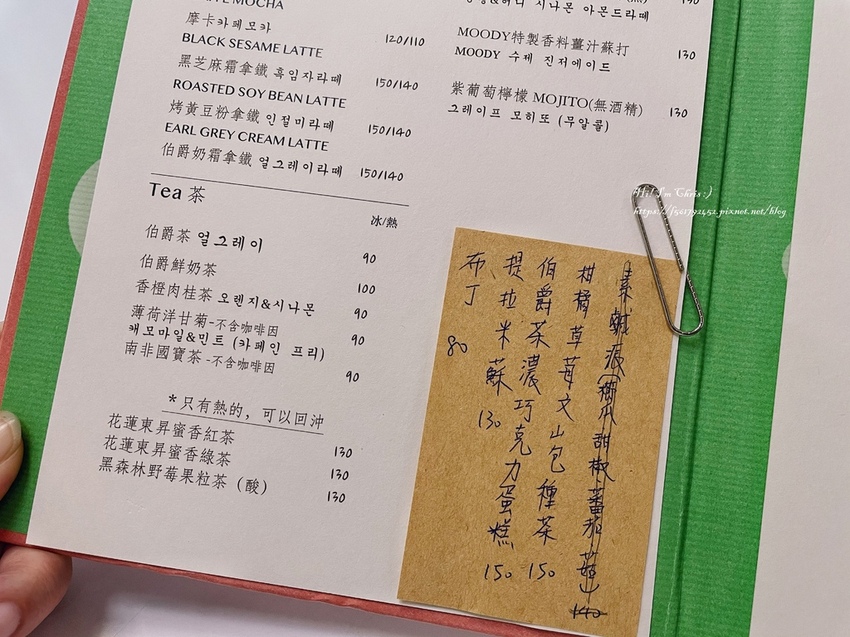 MOCHA
摩卡카페모카
120/110
BLACK SESAME LATTE
黑芝麻霜拿鐵 흑임자라떼
150/140
ROASTED SOY BEAN LATTE
烤黃豆粉拿鐵 인절미라떼
150/140
EARL GREY CREAM LATTE
伯爵奶霜拿鐵 얼그레이라떼
150/140
Tea 茶
冰/熱
伯爵茶 얼그레이
90
伯爵鮮奶茶
100
香橙肉桂茶 오렌지&시나몬
90
薄荷洋甘菊-不含咖啡因
캐모마일&민트 (카페인 프리)
90
南非國寶茶 -不含咖啡因
90
*只有熱的，可以回沖
花蓮東昇蜜香紅茶
130
花蓮東昇蜜香綠茶
130
黑森林野莓果粒茶（酸）
130
시나몬 아몬드라떼
MOODY特製香料薑汁蘇打
130
MOODY 수제 진저에이드
紫葡萄檸檬 MOJITO(無酒精)
130
그레이프 모히또 (무알콜)
Hi! I'm Chris :)
https://f501792452.pixnet.net/blog
甜椒蕃茄
140
柑橘草莓文山包種茶
150
伯爵茶濃巧克力蛋糕
150
提拉米蘇
130
布丁
80